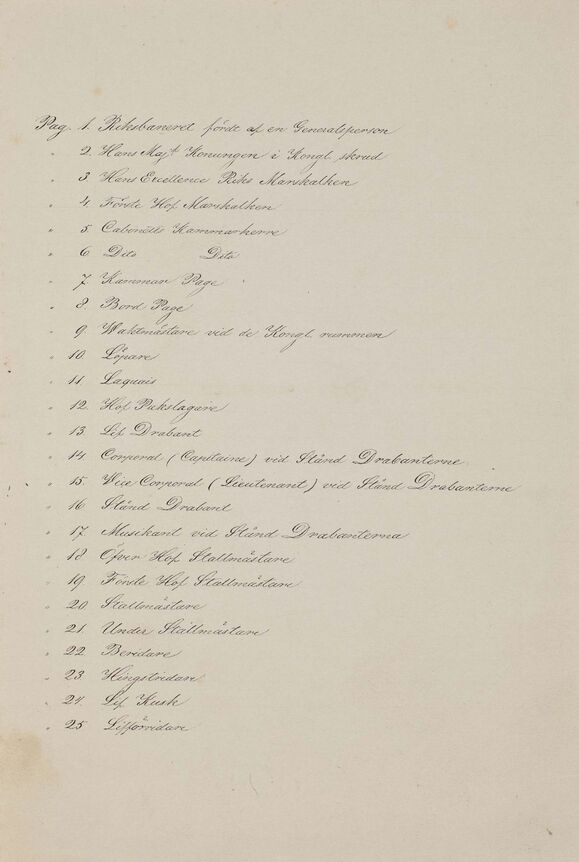 Pag. 1. Riksbaneret fördt af en Generalsperson
" 2. Hans Maj:t Konungen i Kongl. skrud
" 3. Hans Excellence Riks Marskalken
" 4. Förste Hof Marskalken
" 5. Cabinetts Kammarherre
" 6. Dito Dito
" 7. Kammar Page
" 8. Bord Page
" 9. Waktmästare vid de Kongl. rummen
" 10. Löpare
" 11. Laquais
" 12. Hof Pukslagare
" 13. Lif Drabant
" 14. Corporal (Capitaine) vid Stånd Drabanterne
" 15. Vice Corporal (Lieutenant) vid Stånd Drabanterne
" 16. Stånd Drabant
" 17. Musikant vid Stånd Drabanterna
" 18. Öfver Hof Stallmästare
" 19. Förste Hof Stallmästare
" 20. Stallmästare
" 21. Under Stallmästare
" 22. Beridare
" 23. Hingstridare
" 24. Lif Kusk
" 25. Lifförridare